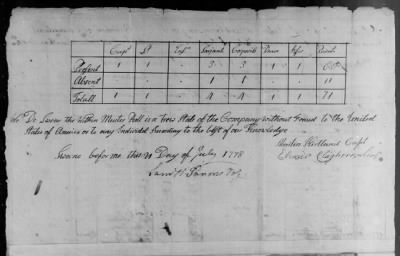 Capt Lt Ens Serjeant Corporals Drum Fifer Privates
Present 1 1 - 3 3 1 1 60
Absent - - - 1 1 - - 11
Totall 1 1 - 4 4 1 1 71
We Do Swear the Within Muster Roll is a True State of the Company without Fraud to the United
States of America or to any Individual According to the best of our Knowledge
Sworn before me this 21 Day of July 1778
Capt